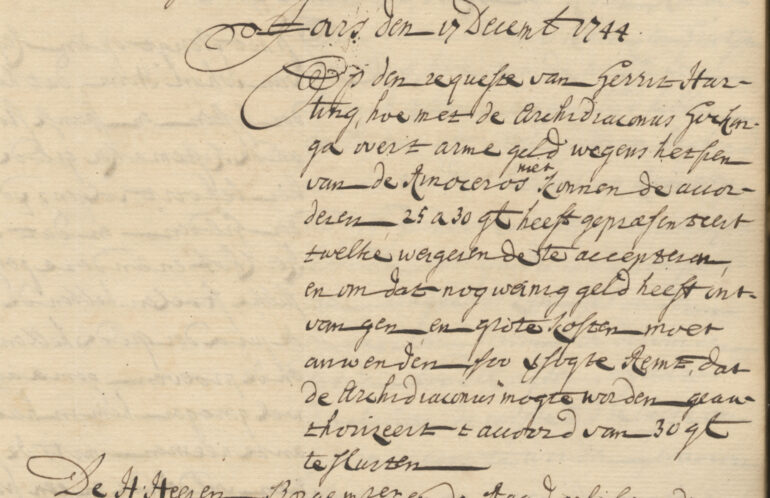 Jovis den 17 Decemb 1744.
Op den requeste van Gerrit Har-
ting, hoe met de Archidiaconus Gockin-
ga overt arme geld wegens het sien
van de Rinoceros niet konnende accor-
deren 25 a 30 gl heeft gepræsenteert
twelke weigerende te accepteren
en om dat nog weinig geld heeft ont-
vangen en grote kosten moet
anwenden soo versogte Remt, dat
de Archidiaconus mogte worden geau-
thorizeert t accoord van 30 gl
te sluiten
De H. Heeren